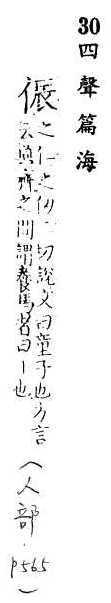 30 四聲篇海
侲 之仁之仞二切說文曰童子也方言
云燕齊之間謂養馬者曰丨也
(人部. p565)